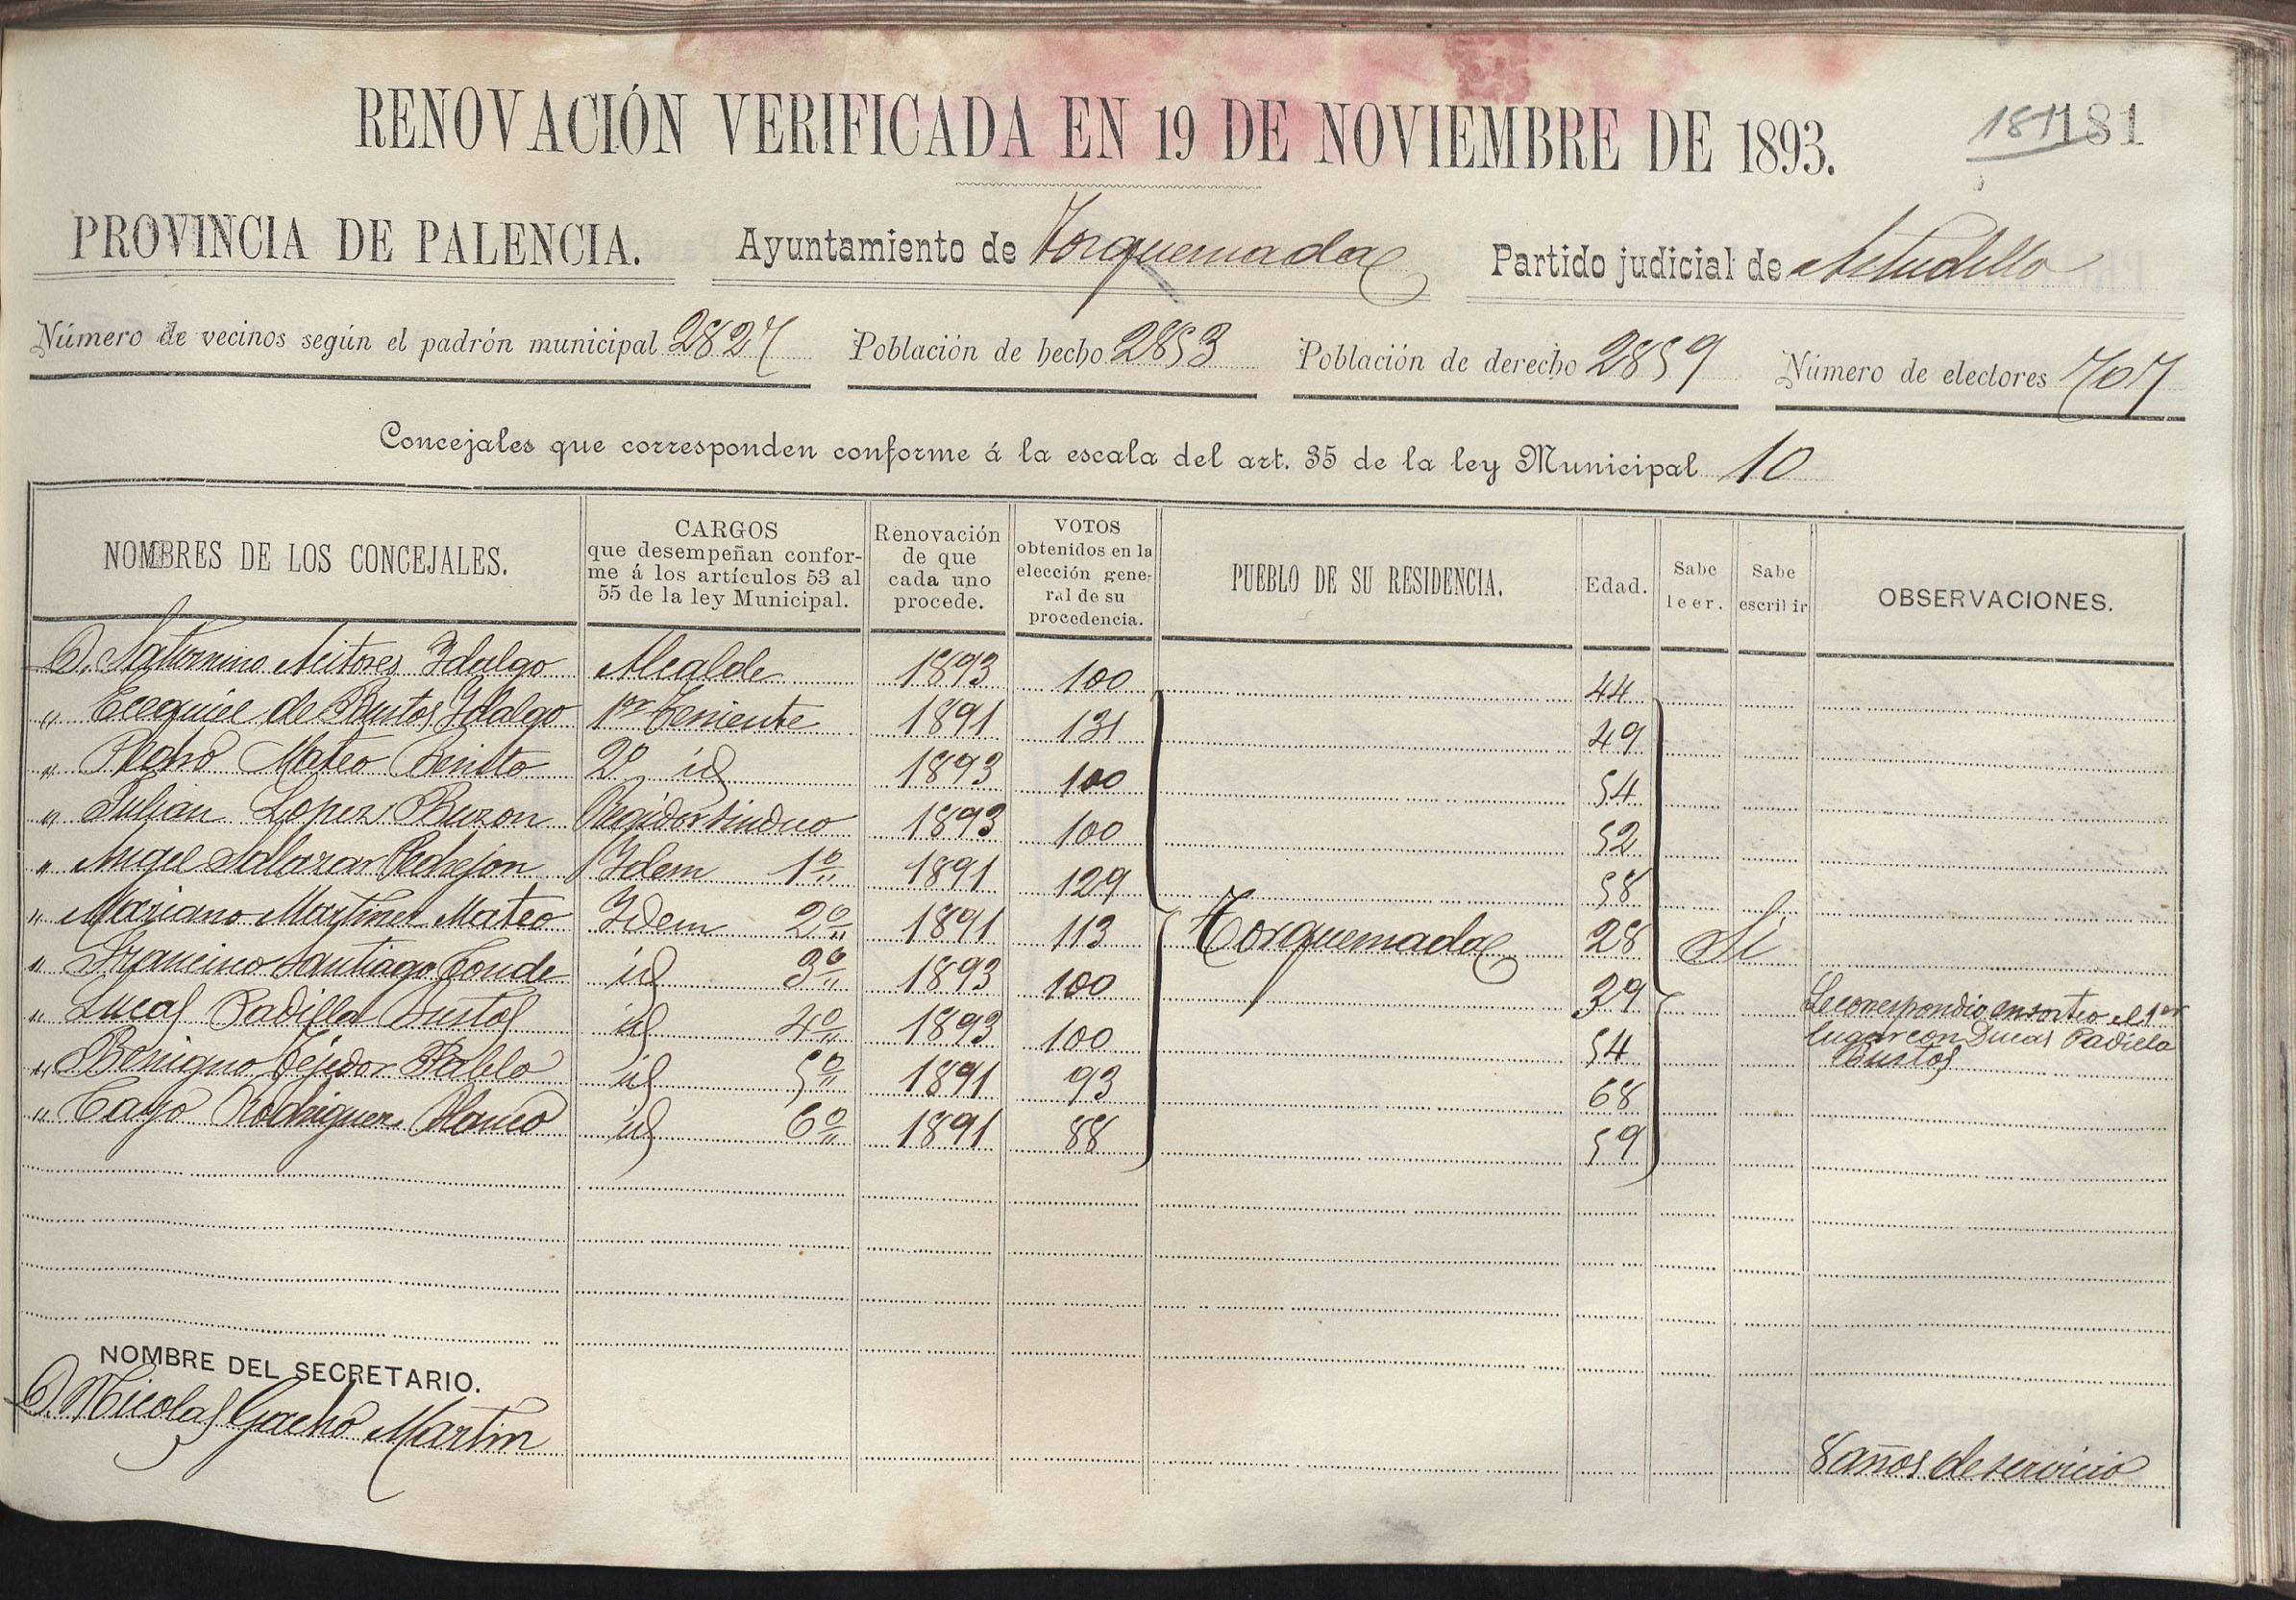 RENOVACIÓN VERIFICADA EN 19 DE NOVIEMBRE DE 1893.
181 181
PROVINCIA DE PALENCIA. Ayuntamiento de Torquemada Partido judicial de Astudillo
Número de vecinos según el padrón municipal 2827 Población de hecho 2853 Población de derecho 2859 Número de electores 707
Concejales que corresponden conforme á la escala del art. 35 de la ley Municipal 10
NOMBRES DE LOS CONCEJALES.
CARGOS
que desempeñan confor-
me á los artículos 53 al
55 de la ley Municipal.
Renovación
de que
cada uno
procede.
VOTOS
obtenidos en la
elección gene-
ral de su
procedencia.
PUEBLO DE SU RESIDENCIA.
Edad.
Sabe
leer.
Sabe
escribir
OBSERVACIONES.
D. Saturnino Hidalgo Alcalde 1893 100 44
" Ecequiel de Bustos Hidalgo 1er Teniente 1891 131 49
" Pedro Mateo Benito 2º id 1893 100 54
" Julian Lopez Buzon Regidor sindico 1893 100 52
" Angel Salazar Pedrejon Idem 1º 1891 129 58
" Mariano Martinez Mateo Idem 2º 1891 113 Torquemada 28 Si
" Francisco Santiago Conde id 3º 1893 100 39
" Lucas Padilla Bustos id 4º 1893 100 54
" Benigno Tejedor Pablo id 5º 1891 93 68
" Cayo Rodriguez Blanco id 6º 1891 88 59
Le correspondió en sorteo el 1er
lugar con Lucas Padilla
Bustos
NOMBRE DEL SECRETARIO.
D. Nicolas Gacho Martin
8 años de servicio